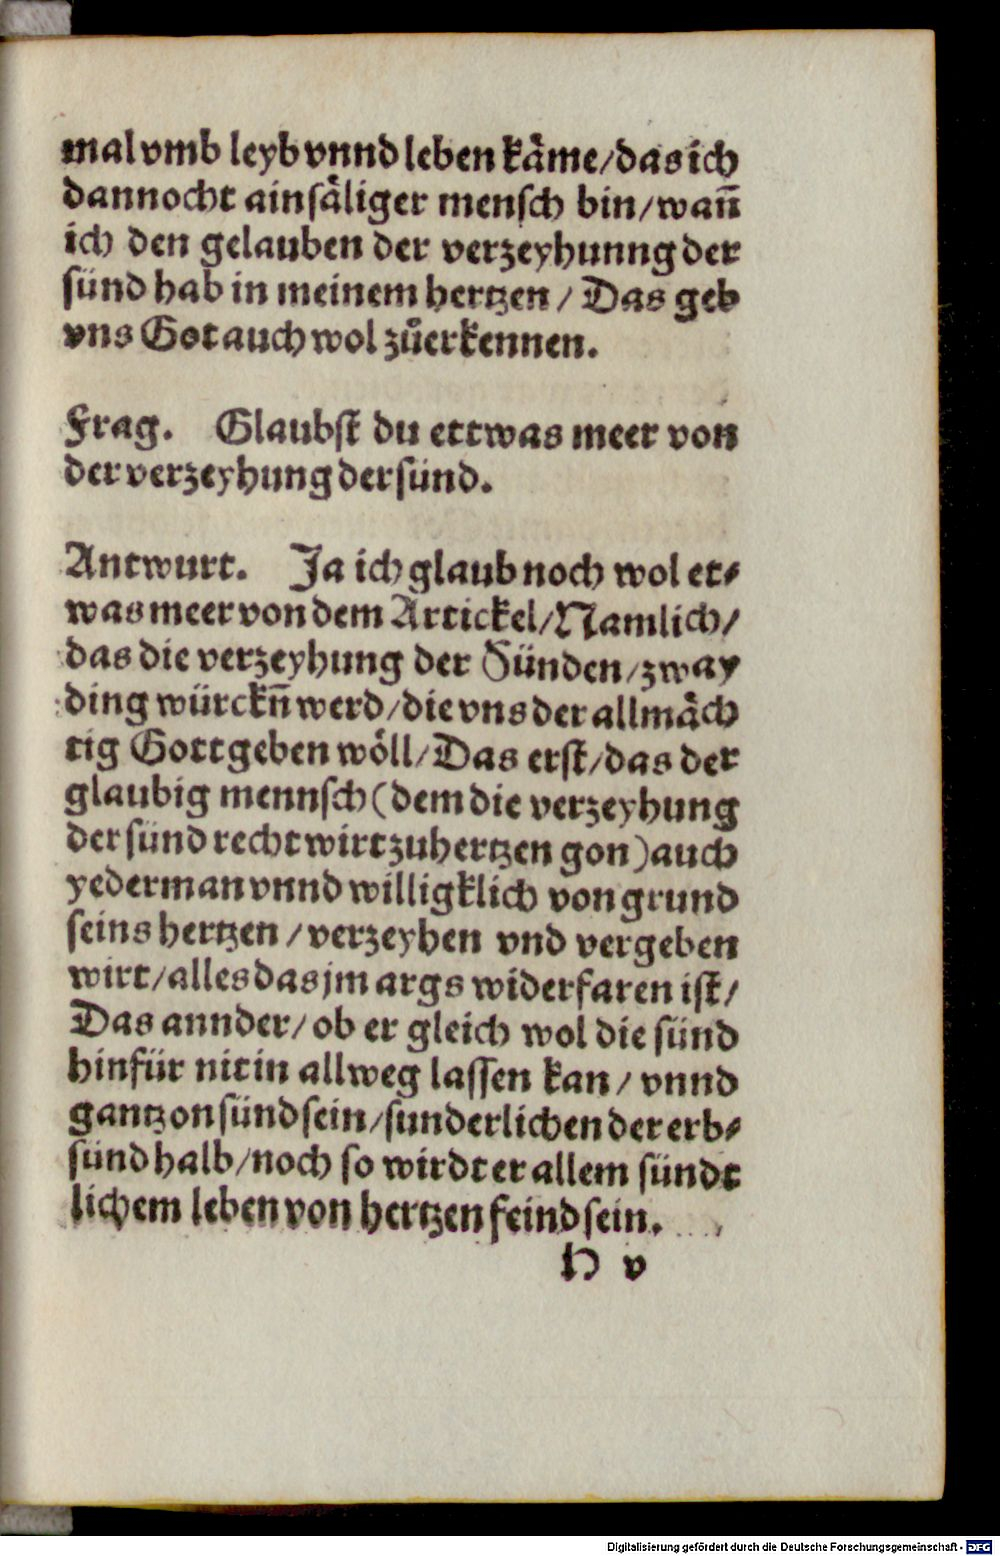 mal vmb leyb vnnd leben kaͤme/das ich
dannocht ain saͤliger mensch bin/wañ
ich den gelauben der verzeyhunng der
sünd hab in meinem hertzen/ Das geb
vns Got auch wol zůerkennen.
Frag. Glaubst du ettwas meer von
der verzeyhung der sünd.
Antwurt. Ja ich glaub noch wol et⸗
was meer von dem Artickel/Namlich/
das die verzeyhung der Sünden/zway
ding würckñ werd/die vns der allmaͤch
tig Gott geben woͤll/Das erst/das der
glaubig mennsch (dem die verzeyhung
der sünd recht wirt zuhertzen gon) auch
yederman vnnd willigklich von grund
seins hertzen/verzeyhen vnd vergeben
wirt/alles das jm args widerfaren ist/
Das annder/ob er gleich wol die sünd
hinfür nit in allweg lassen kan/ vnnd
gantz on sünd sein/sunderlichen der erb⸗
sünd halb/noch so wirdt er allem sündt
lichem leben von hertzen feind sein.
H v
Digitalisierung gefördert durch die Deutsche Forschungsgemeinschaft - DFG